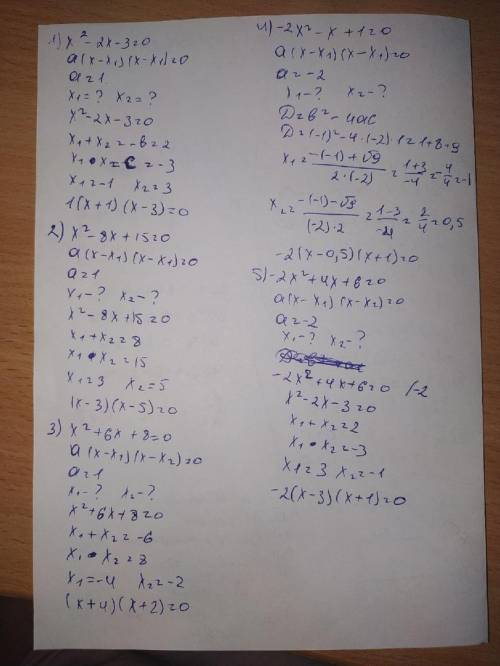 1) x² - 2x - 3 = 0
a(x - x₁)(x - x₁) = 0
a = 1
x₁ = ? x₂ = ?
x² - 2x - 3 = 0
x₁ + x₂ = -в = 2
x₁ • x = c = -3
x₁ = -1 x₂ = 3
1(x + 1)(x - 3) = 0
2) x² - 8x + 15 = 0
a(x - x₁)(x - x₁) = 0
a = 1
x₁ - ? x₂ - ?
x² - 8x + 15 = 0
x₁ + x₂ = 8
x₁ • x₂ = 15
x₁ = 3 x₂ = 5
(x - 3)(x - 5) = 0
3) x² + 6x + 8 = 0
a(x - x₁)(x - x₂) = 0
a = 1
x₁ - ? x₂ - ?
x² + 6x + 8 = 0
x₁ + x₂ = -6
x₁ • x₂ = 8
x₁ = -4 x₂ = -2
(x + 4)(x + 2) = 0
4) -2x² - x + 1 = 0
a(x - x₁)(x - x₁) = 0
a = -2
x₁ - ? x₂ - ?
D = в² - 4ac
D = (-1)² - 4 • (-2) • 1 = 1 + 8 = 9
x₁ = (-(-1) + √9) / (2 • (-2)) = (1 + 3) / -4 = -4/4 = -1
x₂ = (-(-1) - √9) / ((-2) • 2) = (1 - 3) / -4 = 2/4 = 0,5
-2(x - 0,5)(x + 1) = 0
5) -2x² + 4x + 6 = 0
a(x - x₁)(x - x₂) = 0
a = -2
x₁ - ? x₂ - ?
-2x² + 4x + 6 = 0 /-2
x² - 2x - 3 = 0
x₁ + x₂ = 2
x₁ • x₂ = -3
x₁ = 3 x₂ = -1
-2(x - 3)(x + 1) = 0